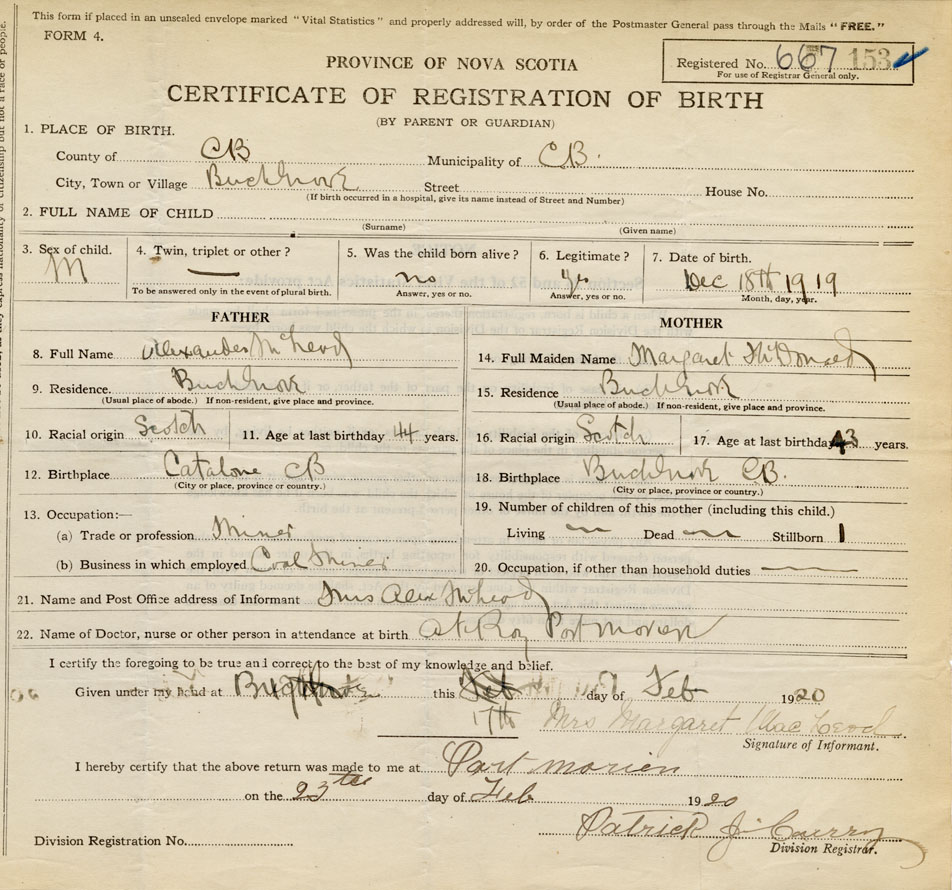 This form if placed in an unsealed envelope marked "Vital Statistics" and properly addressed will, by order of the Postmaster General pass through the Mails "FREE."
FORM 4.
Registered No. 667 153
For use of Registrar General only.
PROVINCE OF NOVA SCOTIA
CERTIFICATE OF REGISTRATION OF BIRTH
(BY PARENT OR GUARDIAN)
1. PLACE OF BIRTH.
County of CB Municipality of CB.
City, Town or Village Street House No.
(If birth occurred in a hospital, give its name instead of Street and Number)
2. FULL NAME OF CHILD
(Surname) (Given name)
3. Sex of child. M
4. Twin, triplet or other? —
To be answered only in the event of plural birth.
5. Was the child born alive? no
Answer, yes or no.
6. Legitimate? Yes
Answer, yes or no.
7. Date of birth. Dec 18th 1919
Month, day, year.
FATHER
8. Full Name Alexander McLeod
9. Residence.
(Usual place of abode.) If non-resident, give place and province.
10. Racial origin Scotch 11. Age at last birthday 44 years.
12. Birthplace Catalone CB
(City or place, province or country.)
13. Occupation:—
(a) Trade or profession Miner
(b) Business in which employed Coal Miner
MOTHER
14. Full Maiden Name Margaret McDonald
15. Residence
(Usual place of abode.) If non-resident, give place and province.
16. Racial origin Scotch 17. Age at last birthday 43 years.
18. Birthplace CB.
(City or place, province or country.)
19. Number of children of this mother (including this child.)
Living — Dead — Stillborn 1
20. Occupation, if other than household duties —
21. Name and Post Office address of Informant Mrs Alex McLeod
22. Name of Doctor, nurse or other person in attendance at birth Port Morien
I certify the foregoing to be true and correct to the best of my knowledge and belief.
Given under my hand at this 17th day of Feb 1920
Mrs Margaret MacLeod
Signature of Informant.
I hereby certify that the above return was made to me at Port Morien
on the 23rd day of Feb 1920
Patrick J. Curry
Division Registration No. Division Registrar.